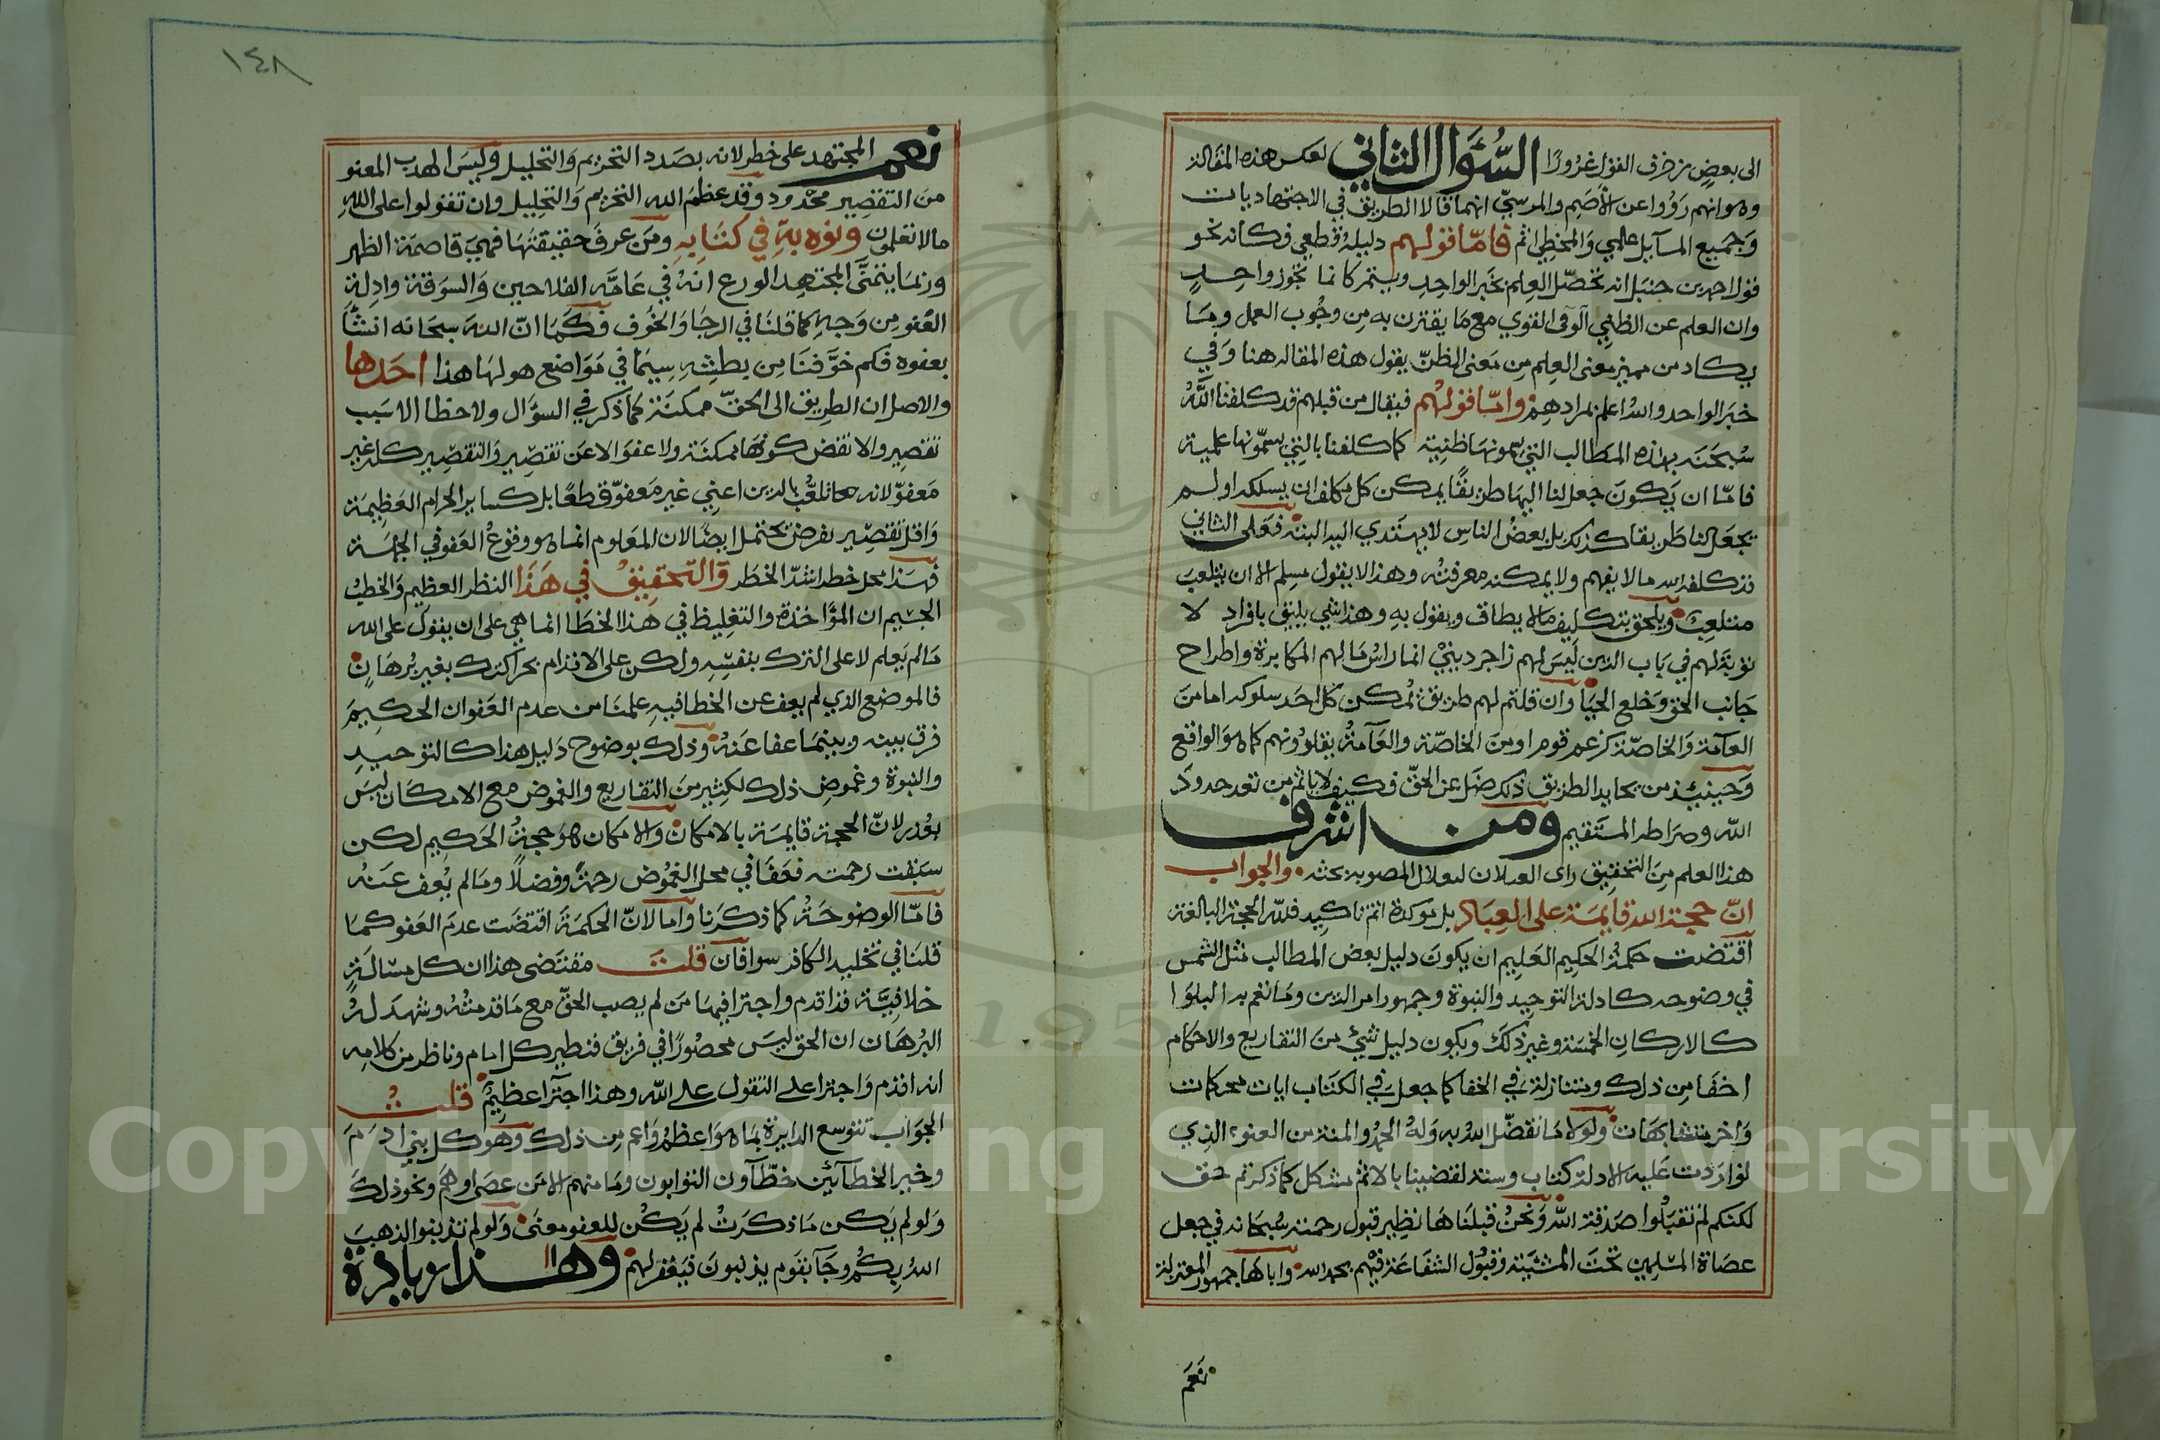 الى بعض زخرف القول غرورًا السُّؤال الثاني لعكس هذه المقالة
وهو انهم رَوُوا عن الاصم والمرسيّ انهما قالا الطريق في الاجتهاديات
وجميع المسآيل علمي والمخطي اثم فامّا قولهم دليله قطعي فكانه نحو
قول احمد بن حنبل انه تحصّل العلم بخبر الواحد ويستمر كانما تجوز واحد
وان العلم عن الظني القوي مع ما يقترن به من وجُوب العمل وما
يكاد من مميز معنى العلم من معنى الظنّ يقول هذه المقاله هنا وفي
خبر الواحد والله اعلم بمرادهم وامّا قولهم فيقال من قبلهم قد كلفنا الله
سبحنه بهذه المطالب التي يسمونها ظنية كما كلفنا بالتي يسمّونها علمية
فامّا ان يكون جعل لنا اليها طريقًا يمكن كل مكلف ان يسلكه او لم
يجعل لنا طريقا كذلك بل بعض الناس لا يهتدي اليه البتة فعلى الثاني
قد كلفه الله ما لا يفهم ولا يمكنه معرفته وهذا لا يقول مسلم الا ان يتلعب
متلعب ويلحق بتكليف مالا يطاق ويقول به وهذا شي يليق بافراد لا
توبة لهم في باب الدين ليس لهم زاجر ديني انما راس مالهم المكابرة واطراح
جانب الحق وخلع الحيَا وان قلتم لهم طريق يمكن كل احد سلوكه اما من
العآمة والخاصّة كزعم قوم او من الخاصّة والعآمةُ يقلدونهم كما هو الواقع
وحينيئذ من يحايد الطريق ذلك ضل عن الحقّ فكيف لا ياثم من تعد حدود
الله وصراطه المستقيم ومن اشرف
هذا العلم من التحقيق راى المصوبة بحثه والجواب
انّ حجة الله قايمة على العباد بل موكدة اتم تاكيد فللّه الحجة البالغة
اقتضت حكمة الحكيم العليم ان يكون دليل بعض المطالب مثل الشمس
في وضوحه كادلة التوحيد والنبوة وجمهور امر الدين وما تعم به البلوا
كالاركان الخمسة وغير ذلك ويكون دليل شيء من التفاريع والاحكام
اخفا من ذلك ومتنازلة في الخفا كما جعل في الكتاب ايات محكمات
واخر متشابهات ولولا ما تفضّل الله به وله الحمد والمنة من العفو الذي
تواردت عليه الادلة كتاب وسنة لقضينا بالاثم مشكل كما ذكرتم حق
لكنكم لم تقبلوا صدقة الله ونحن قبلناها نظير قبول رحمته سبحانه في جعل
عصاة المسلمين تحت المشيّة وقبُول الشفاعة فيهم بحمد الله واباها جمهور المعتزلة
نعَم
١٤٨
نعم المجتهد على خطر لانه بصدد التحريم والتحليل وليس المعفو
من التقصير محدود وقد عظم الله التحريم والتحليل وان تقولوا على الله
مالا تعلمون ونوه به في كتابه ومن عرف حقيقتها فهي قاصمة الظهر
وربما يتمنى المجتهد الورع انه في عامّه الفلاحين والسوقة وادلة
العفو من وجه كما قلنا في الرجا والخوف فكما انّ الله سبحانه انشأ
بعفوه فكم خوّفنا من بطشه سيما في مواضع هو لها هذا احدها
والاصل ان الطريق الى الحقّ ممكنة كما ذكر في السؤال ولا خطا الا بسبب
تقصير والا نقض كونها ممكنة ولا عفو الا عن تقصير والتقصير كله غير
معفوّ لانه تلعّب بالدين اعني غير معفوّ قطعًا بل كساير الجرام العظيمة
واقل تقصير يفرض يحتمل ايضًا لان المعلوم انما هو وقوع العفو في الجملة
فهذا محل خطر اشد الخطر والتحقيق في هَذا النظر العظيم والخطب
الجسيم ان المؤاخذة والتغليظ في هذا الخطا انما هي على ان يقول على الله
مالم يعلم لا على الترك بنفسه ولكن على الاقدام بحراكك بغير برهان
فالموضع الذي لم يعف عن الخطا فيه علمنا من عدم العفو ان الحكيم
فرق بينه وبينما عفا عنه وذلك بوضوح دليل هذا كالتوحيد
والنبوة وغموض ذلك لكثير من التفاريع والغموض مع الامكان ليس
بعُذر لانّ الحجة قايمة بالامكان والامكان هو حجةُ الحكيم لكن
سبقت رحمته فعفا في محل الغموض رحمةً وفضلًا ومالم يعف عنه
فامّا الوضوحه كما ذكرنا واما لانّ الحكمة اقتضت عدم العفو كما
قلنا في تخليد الكافر سوا فان قلت مقتضى هذا ان كل مسالة
خلافيّة قد اقدم واجترا فيها من لم يصب الحقّ مع ما قدمته وشهد له
البرهان ان الحق ليس محصورًا في فريق فنظير كل امام وناظر من كلامه
انه اقدم واجترا على التقول على الله وهذا اجترا عظيم قلت
الجواب تتوسع الدايرة بما هو اعظم واعم من ذلك وهو كل بني ادم
وخير الخطآئين خطآون التوابون وما منهم الا من عصى او هم ونحو ذلك
ولو لم يكن ما ذكرت لم يكن للعفو معنى ولو لم تذنبوا لذهب
الله بكم وجآ بقوم يذنبون فيغفر لهم وهذا زبادة
Copyright © King Saud University
1957